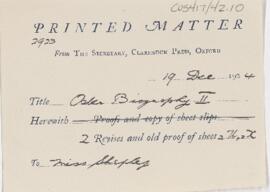 CUS417/42.10
PRINTED MATTER
2923
From THE SECRETARY, CLARENDON PRESS, OXFORD
19 Dec 1924
Title Osler Biography II
Herewith Proofs and copy of sheet slips
2 Revises and old proof of sheet
To Miss Shepley